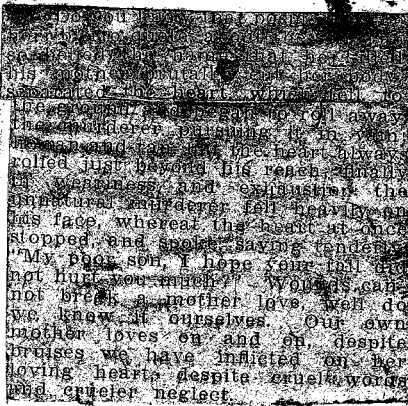 you know that poem
his mother brutally cut her body,
separated the heart, which fell to
the ground, and began to roll away,
the murderer pursuing it in vain,
ran and ran but the heart always
rolled just beyond his reach, finally
in weariness and exhaustion the
unnatural murderer fell heavily on
his face, whereat the heart at once
stopped, and spoke, saying tenderly
"My poor son, I hope your fall did
not hurt you much?" Wounds can
not break a mother love, well do
we know it ourselves. Our own
mother loves on and on, despite
bruises we have inflicted on her
loving heart, despite cruel words
and crueler neglect.